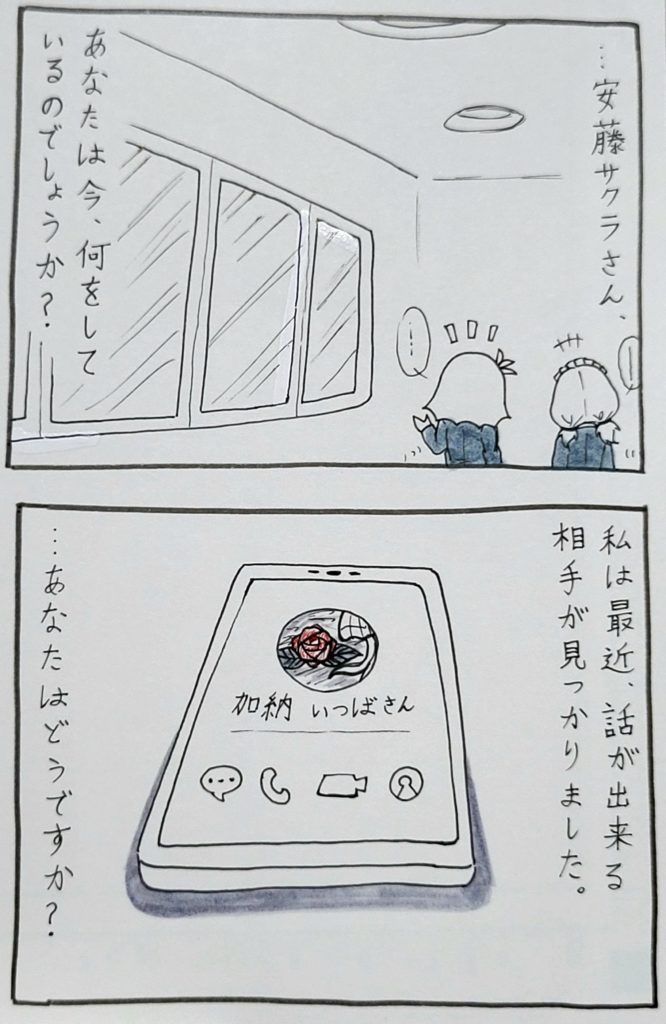 …安藤サクラさん、
あなたは今、何をして
いるのでしょうか？
私は最近、話が出来る
相手が見つかりました。
加納 いつばさん
…あなたはどうですか？